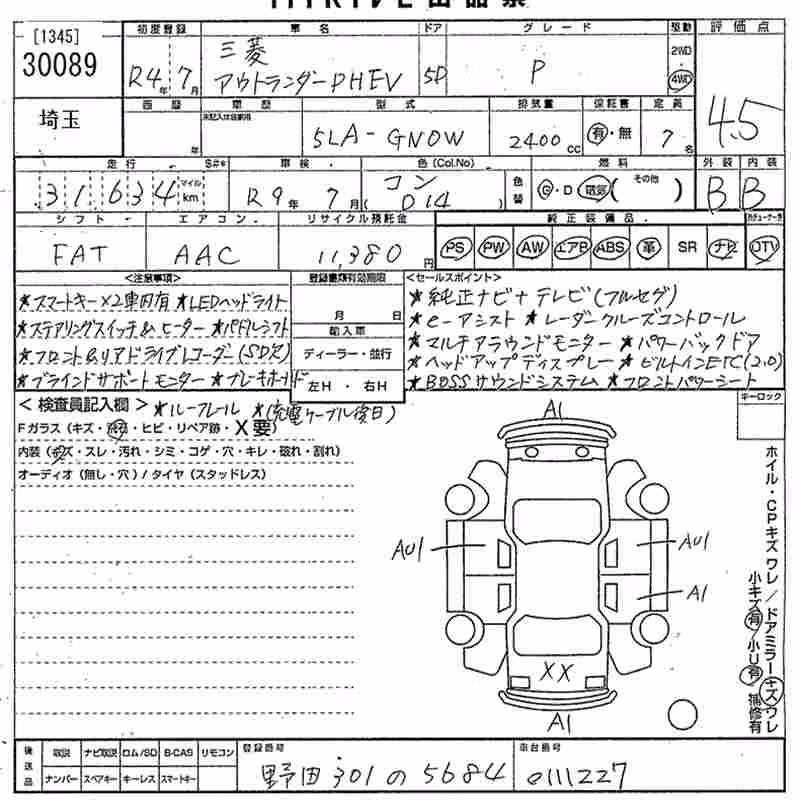 [1345]
30089
埼玉
初度登録 車名 ドア グレード 駆動 評価点
R4年7月 三菱 アウトランダーPHEV 5D P 2WD 4WD 4.5
西暦 車歴 型式 排気量 保証書 定員
年 未記入は自家用 5LA-GN0W 2400cc 有・無 7名
走行 S#* 車検 色(Col.No) 色替 燃料 外装 内装
31,634 マイル km R9年7月 コン D14 G・D 電気 (その他) B B
シフト エアコン リサイクル預託金 純正装備品
FAT AAC 11,380円 PS PW AW エアB ABS 革 SR ナビ DTV
<注意事項> 登録書類有効期限 <セールスポイント>
★スマートキー×2車内有 ★LEDヘッドライト
★ステアリングスイッチ&ヒーター ★パドルシフト
★フロント&リアドライブレコーダー(SD欠)
★ブラインドサポートモニター ★ブレーキホールド
月 日
輸入車
ディーラー・並行
左H ・ 右H
★純正ナビ+テレビ(フルセグ)
★e-アシスト ★レーダークルーズコントロール
★マルチアラウンドモニター ★パワーバックドア
★ヘッドアップディスプレー ★ビルトインETC(2.0)
★BOSSサウンドシステム ★フロントパワーシート
<検査員記入欄> ★ルーフレール ★(充電ケーブル後日)
Fガラス(キズ・飛石・ヒビ・リペア跡・X要)
内装(キズ・スレ・汚れ・シミ・コゲ・穴・キレ・破れ・割れ)
オーディオ(無し・穴)/タイヤ(スタッドレス)
キーロック
A1
AU1
AU1
A1
XX
A1
ホイル・CPキズ ワレ/ドアミラーキズ ワレ
小キズ有/小U有 補修有
後送品 取説 ナビ取説 ロム/SD B-CAS リモコン
ナンバー スペアキー キーレス スマートキー
登録番号 野田 301 の 5684
車台番号 0111227